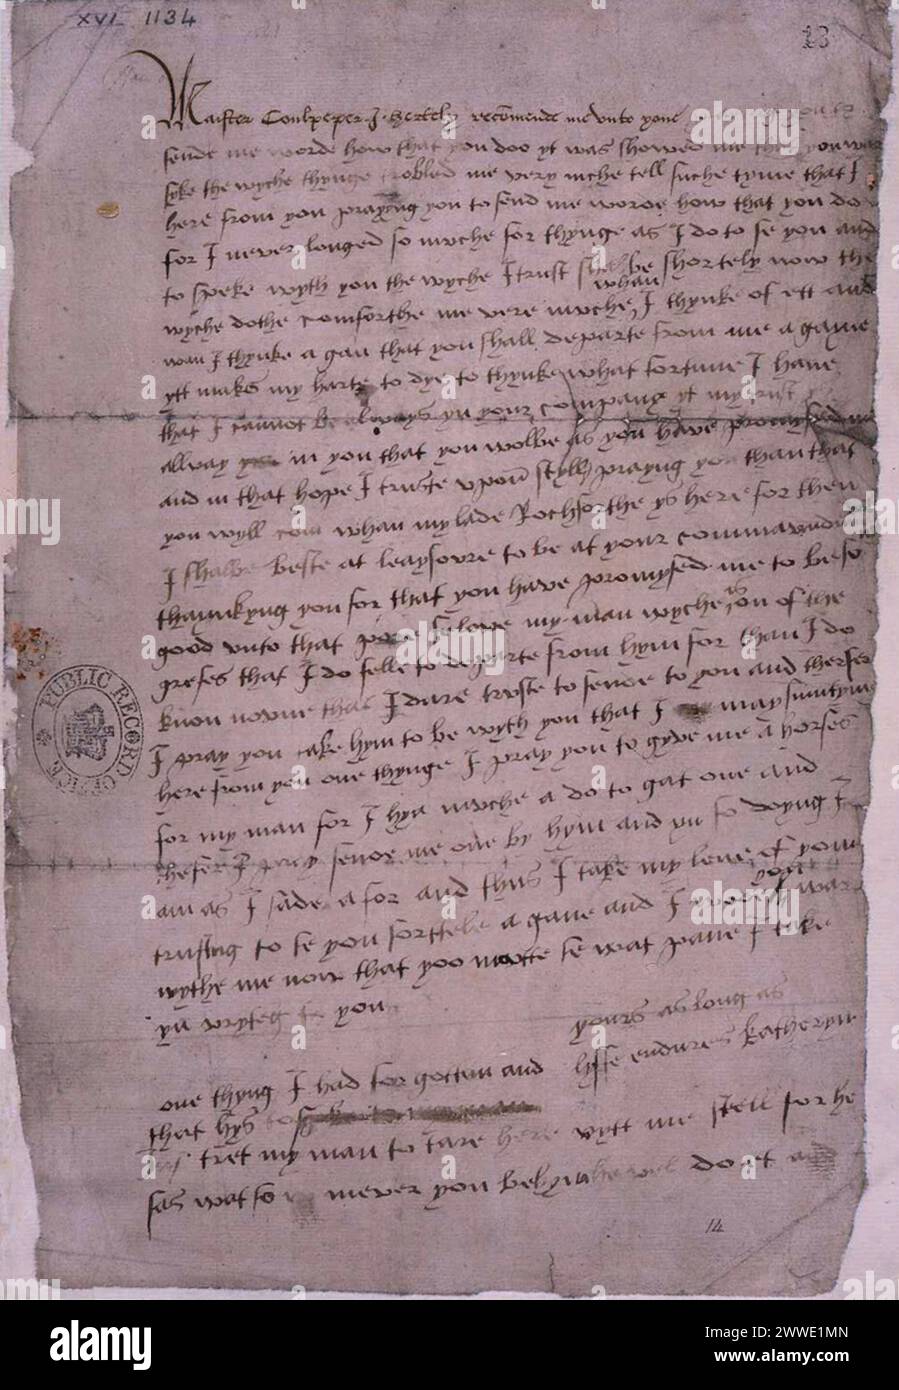 XVI 1134
13
Maister Coulpeper I hertely recōmende me unto youe praying you to
sende me worde how that you doo yt was showed me that you was
syke the wyche thynge trobled me very muche tell suche tyme that I
here from you praying you to send me worde how that you do
for I never longed so muche for thynge as I do to se you and
to speke wyth you the wyche I trust shal be shortely now the
wyche dothe comforthe me verie muche whan I thynke of ett and
wan I thynke agan that you shall departe from me agane
ytt makes my harte to dye to thynke what fortune I have
that I cannot be always yn your company yt my trust ys
allway in you that you wolbe as you have promysed me
and in that hope I truste upon styll praying you than that
you wyll com whan my lade Rochforthe ys here for then
I shalbe beste at leaysoure to be at your commaundm
thaynkyng you for that you have promysed me to be so
good unto that pore felowe my man wyche as on of the
grefes that I do felle to departe from hym for than I do
know noone that I dare truste to sende to you and therfor
I pray you take hym to be wyth you that I may sumtym
here from you one thynge I pray you to gyve me a horse
for my man for I hyd muche a do to gat one and
thefer I pray sende me one by hym and yn so doying I
am as I sade afor and thus I take my leve of you
trusting to se you shortele agane and I wode you war
wythe me now that yoo mutte se wat pane I take
yn wryteg to you
yours as long as
lyffe endures Katheryn
one thyng I had forgotten and
that hys to
tret my man to tare here wytt me stell for he
sas wat so mever you bed hym he wel do et and
PUBLIC RECORD OFFICE
14
alamy
Image ID: 2WWE1MN
www.alamy.com